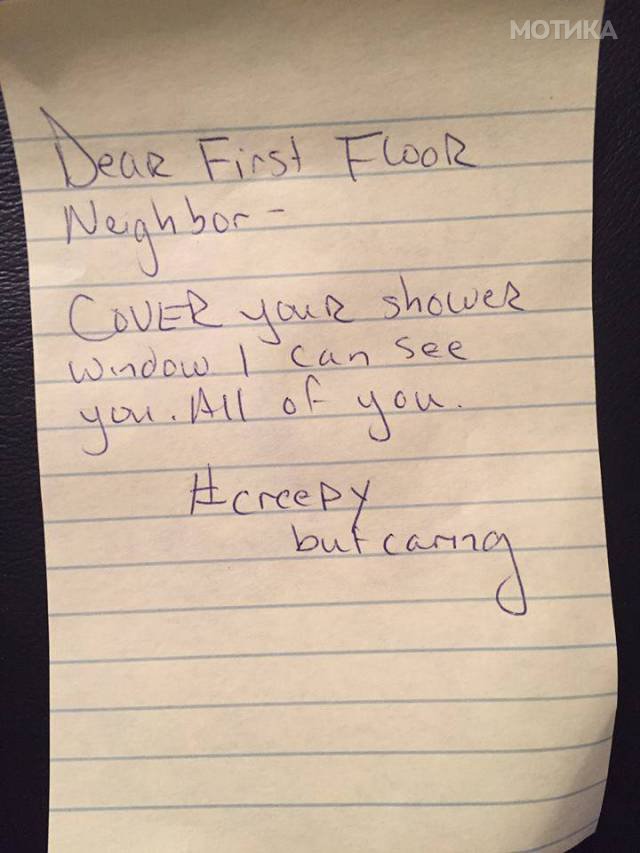 МОТИКА
Dear First Floor
Neighbor-
COVER your shower
window. I can see
you. All of you.
#creepy
but caring